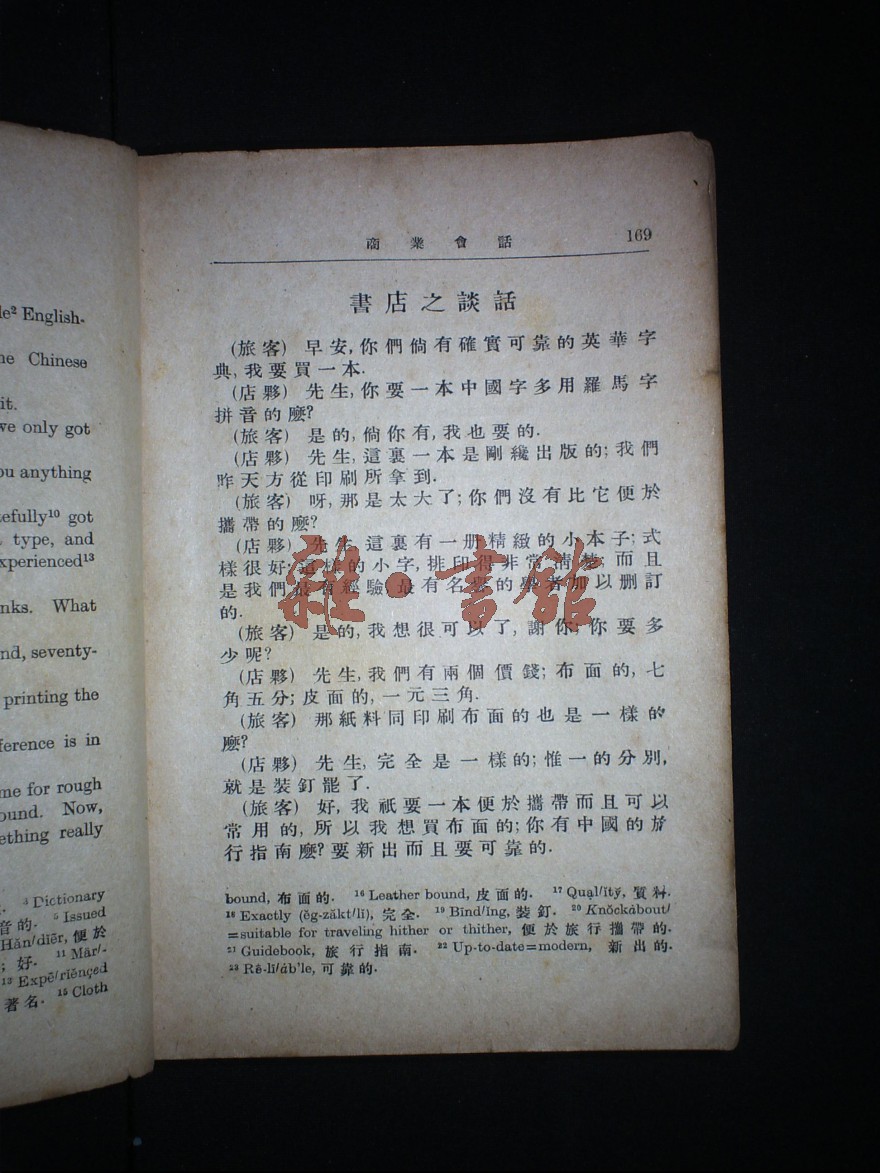 le² English-
ne Chinese
it.
ve only got
ou anything
efully¹⁰ got
type, and
xperienced¹³
nks. What
nd, seventy-
printing the
ference is in
me for rough
ound. Now,
ething really
Dictionary
音的. ⁵ Issued
Hăn/dĭẽr, 便於
; 好. ¹¹ Mär/-
¹² Expē/rĭĕnçed
著名. ¹⁵ Cloth
商業會話 169
書店之談話
(旅客) 早安,你們倘有確實可靠的英華字
典,我要買一本.
(店夥) 先生,你要一本中國字多用羅馬字
拼音的麽?
(旅客) 是的,倘你有,我也要的.
(店夥) 先生,這裏一本是剛纔出版的;我們
昨天方從印刷所拿到.
(旅客) 呀,那是太大了;你們沒有比它便於
攜帶的麽?
(店夥) 先生,這裏有一册精緻的小本子;式
樣很好;這樣的小字,排印得非常清楚;而且
是我們最有經驗,最有名譽的學者加以删訂
的.
(旅客) 是的,我想很可以了,謝你,你要多
少呢?
(店夥) 先生,我們有兩個價錢;布面的,七
角五分;皮面的,一元三角.
(旅客) 那紙料同印刷布面的也是一樣的
麽?
(店夥) 先生,完全是一樣的;惟一的分別,
就是裝釘罷了.
(旅客) 好,我祇要一本便於攜帶而且可以
常用的,所以我想買布面的;你有中國的旅
行指南麽?要新出而且要可靠的.
bound, 布面的. ¹⁶ Leather bound, 皮面的. ¹⁷ Quạl/ĭtў, 質料.
¹⁸ Exactly (ĕg-zăkt/lĭ), 完全. ¹⁹ Bīnd/ĭng, 裝釘. ²⁰ Knŏckȧbout/
=suitable for traveling hither or thither, 便於旅行攜帶的.
²¹ Guidebook, 旅行指南. ²² Up-to-date=modern, 新出的.
²³ Rē-lī/ȧb'le, 可靠的.
雜·書館